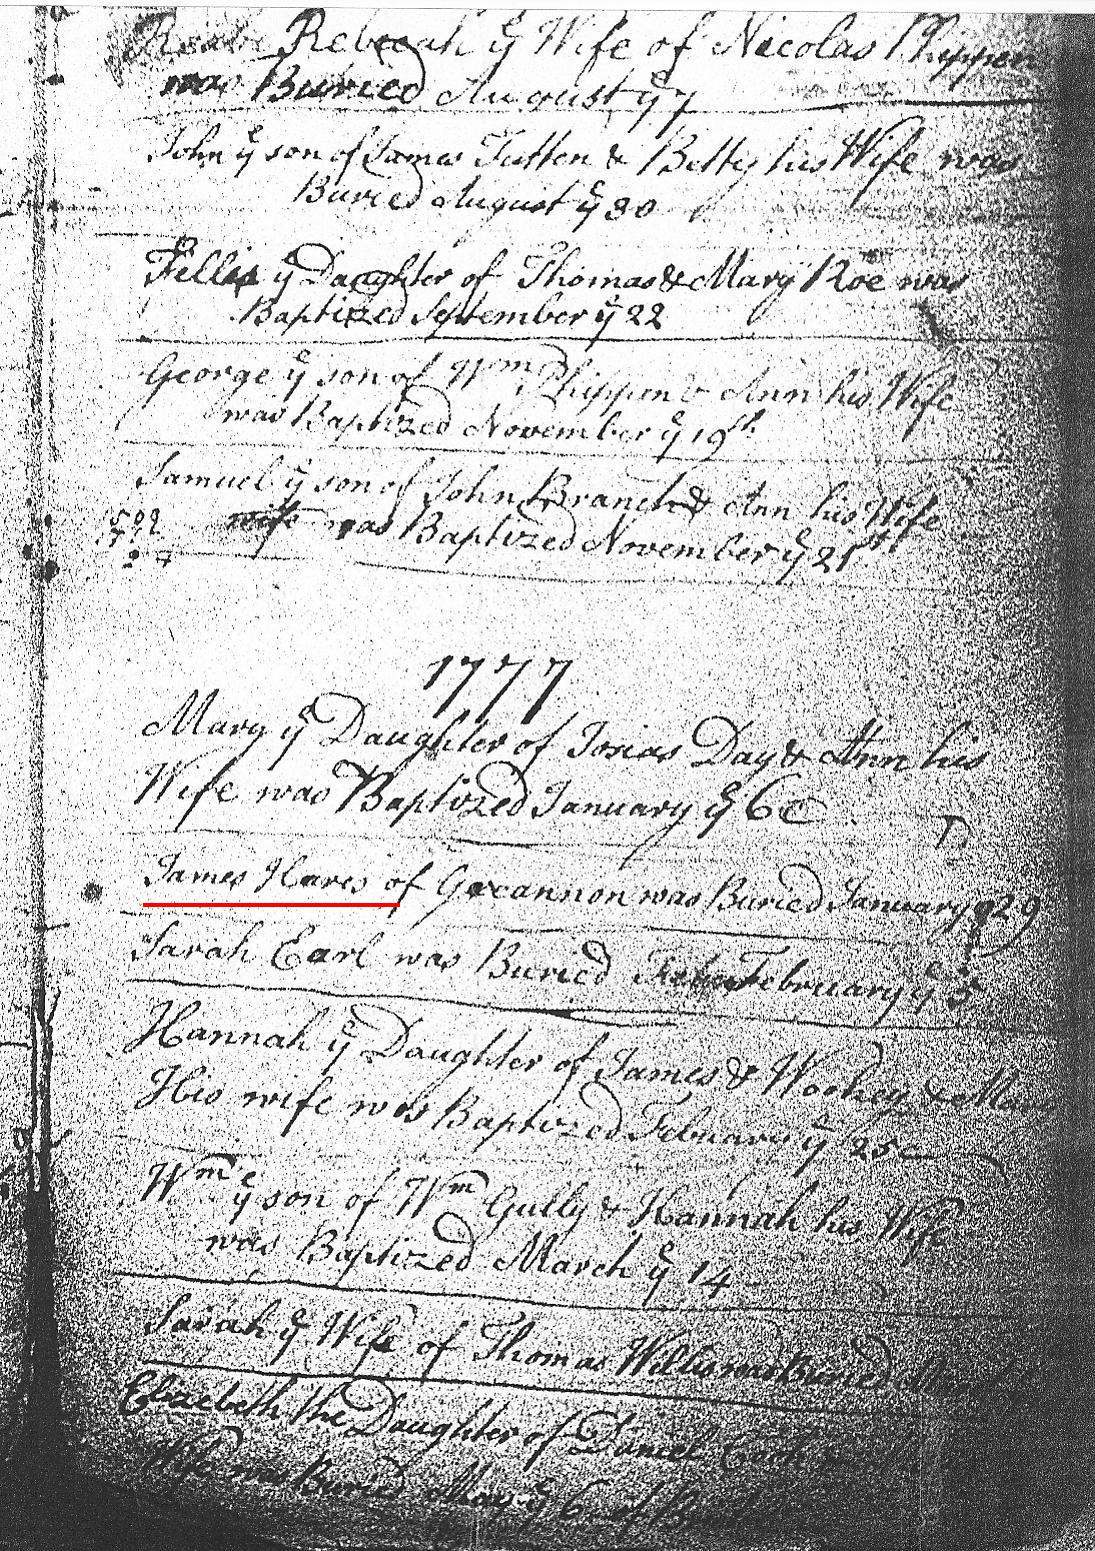 Rebecah ye Wife of Nicolas Phippen
was Buried August ye 7
John ye son of James Tutten & Betty his Wife was
Buried August ye 30
Fellis ye Daughter of Thomas & Mary Roe was
Baptized September ye 22
George ye son of Wm Phippen & Ann his Wife
was Baptized November ye 19th
Samuel ye son of John Branch & Ann his Wife
wife was Baptized November ye 21st
1777
Mary ye Daughter of Josias Day & Ann his
Wife was Baptized January ye 6
James Hares of Greannon was Buried January ye 29
Sarah Earl was Buried February ye 5
Hannah ye Daughter of James & Wookey & Mary
His wife was Baptized February ye 25
Wm ye son of Wm Gully & Hannah his Wife
was Baptized March ye 14
Sarah ye Wife of Thomas Willis was Buried
Elizebeth the Daughter of Daniel Cook
Wife was Buried May ye 6 of